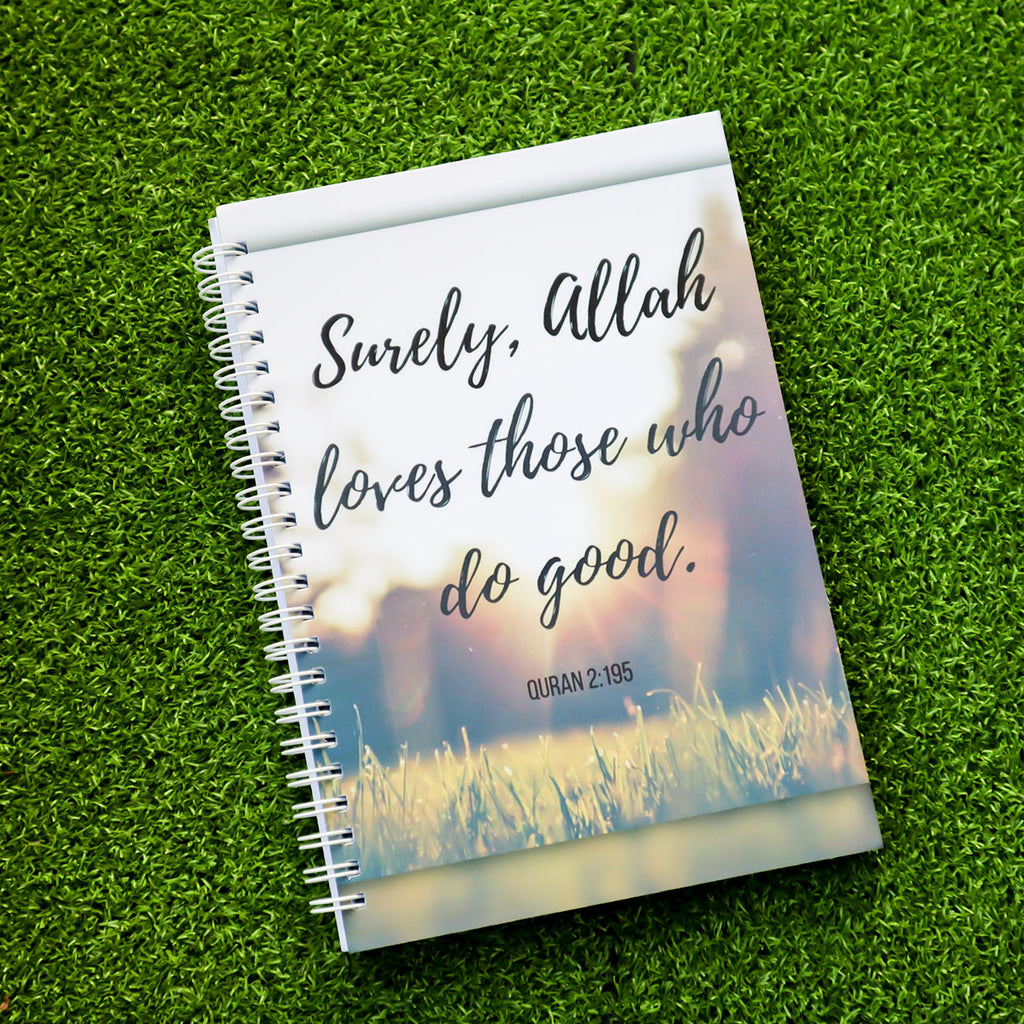 Surely, Allah
loves those who
do good.
QURAN 2:195